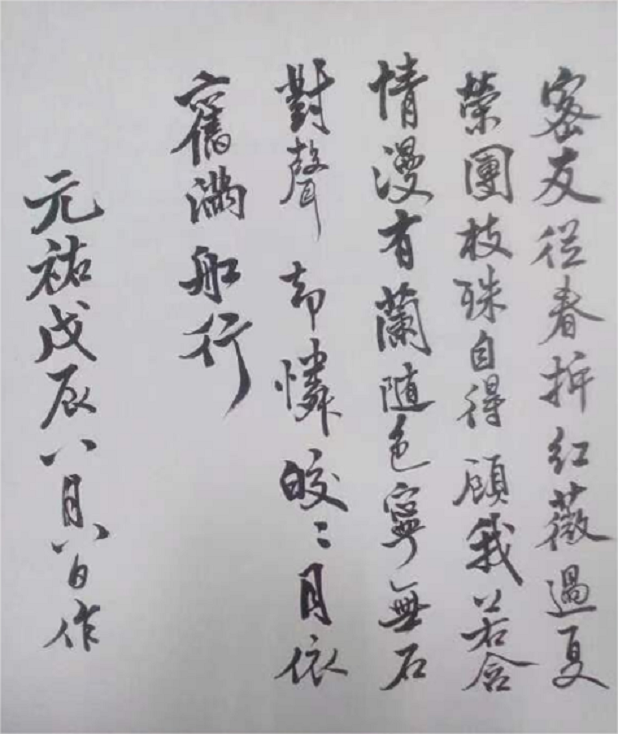 密友従春拆紅薇過夏
榮團枝殊自得顧我若含
情漫有蘭隨色寧無石
對聲却憐皎〻月依
舊滿船行
元祐戊辰八月八日作